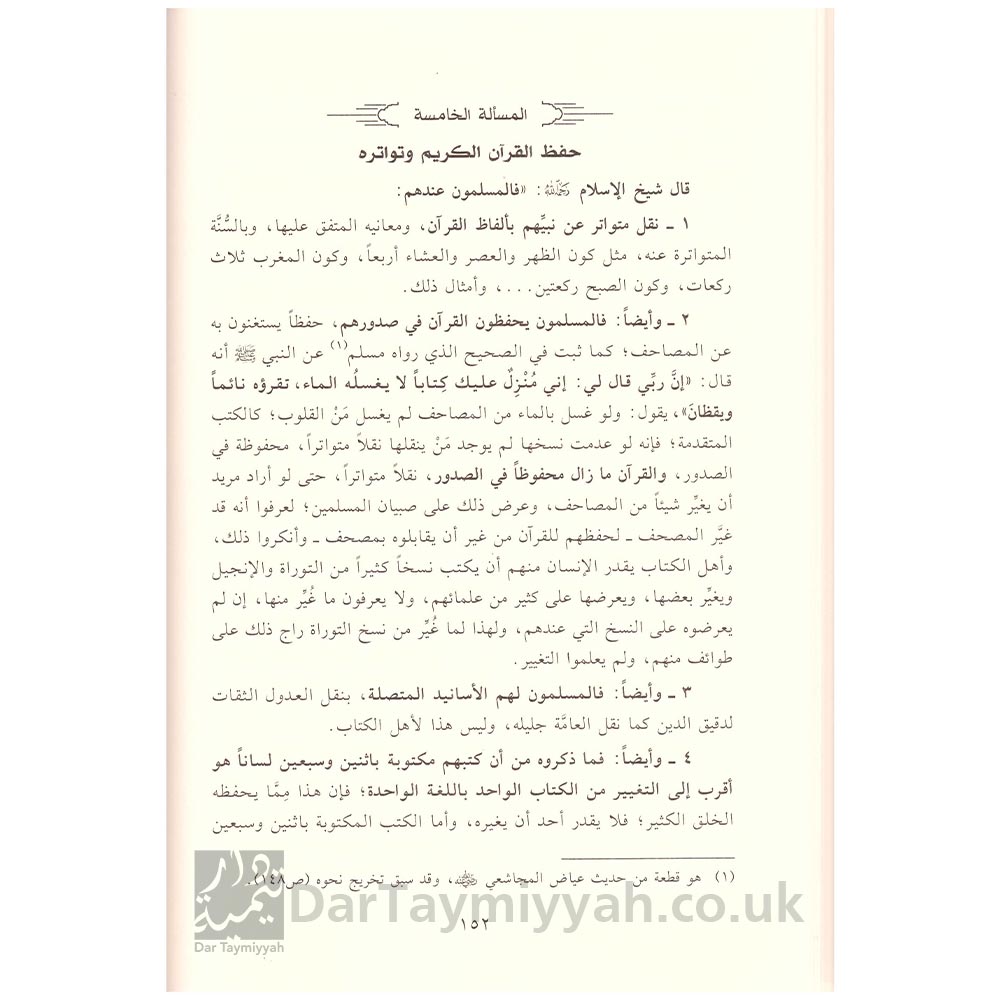 المسألة الخامسة
حفظ القرآن الكريم وتواتره
قال شيخ الإسلام رَحِمَهُ اللهُ: «فالمسلمون عندهم:
١ ـ نقل متواتر عن نبيِّهم بألفاظ القرآن، ومعانيه المتفق عليها، وبالسُّنَّة
المتواترة عنه، مثل كون الظهر والعصر والعشاء أربعاً، وكون المغرب ثلاث
ركعات، وكون الصبح ركعتين...، وأمثال ذلك.
٢ ـ وأيضاً: فالمسلمون يحفظون القرآن في صدورهم، حفظاً يستغنون به
عن المصاحف؛ كما ثبت في الصحيح الذي رواه مسلم(١) عن النبي ﷺ أنه
قال: «إنَّ ربِّي قال لي: إني مُنْزِلٌ عليك كِتاباً لا يغسلُه الماء، تقرؤه نائماً
ويقظانَ»، يقول: ولو غسل بالماء من المصاحف لم يغسل مَنْ القلوب؛ كالكتب
المتقدمة؛ فإنه لو عدمت نسخها لم يوجد مَنْ ينقلها نقلاً متواتراً، محفوظة في
الصدور، والقرآن ما زال محفوظاً في الصدور، نقلاً متواتراً، حتى لو أراد مريد
أن يغيِّر شيئاً من المصاحف، وعرض ذلك على صبيان المسلمين؛ لعرفوا أنه قد
غيَّر المصحف ـ لحفظهم للقرآن من غير أن يقابلوه بمصحف ـ وأنكروا ذلك،
وأهل الكتاب يقدر الإنسان منهم أن يكتب نسخاً كثيراً من التوراة والإنجيل
ويغيِّر بعضها، ويعرضها على كثير من علمائهم، ولا يعرفون ما غُيِّر منها، إن لم
يعرضوه على النسخ التي عندهم، ولهذا لما غُيِّر من نسخ التوراة راج ذلك على
طوائف منهم، ولم يعلموا التغيير.
٣ ـ وأيضاً: فالمسلمون لهم الأسانيد المتصلة، بنقل العدول الثقات
لدقيق الدين كما نقل العامَّة جليله، وليس هذا لأهل الكتاب.
٤ ـ وأيضاً: فما ذكروه من أن كتبهم مكتوبة باثنين وسبعين لساناً هو
أقرب إلى التغيير من الكتاب الواحد باللغة الواحدة؛ فإن هذا مِمَّا يحفظه
الخلق الكثير؛ فلا يقدر أحد أن يغيره، وأما الكتب المكتوبة باثنين وسبعين
(١) هو قطعة من حديث عياض المجاشعي رضي الله عنه، وقد سبق تخريج نحوه (ص١٤٨).
دار تيمية
Dar Taymiyyah
DarTaymiyyah.co.uk
١٥٢